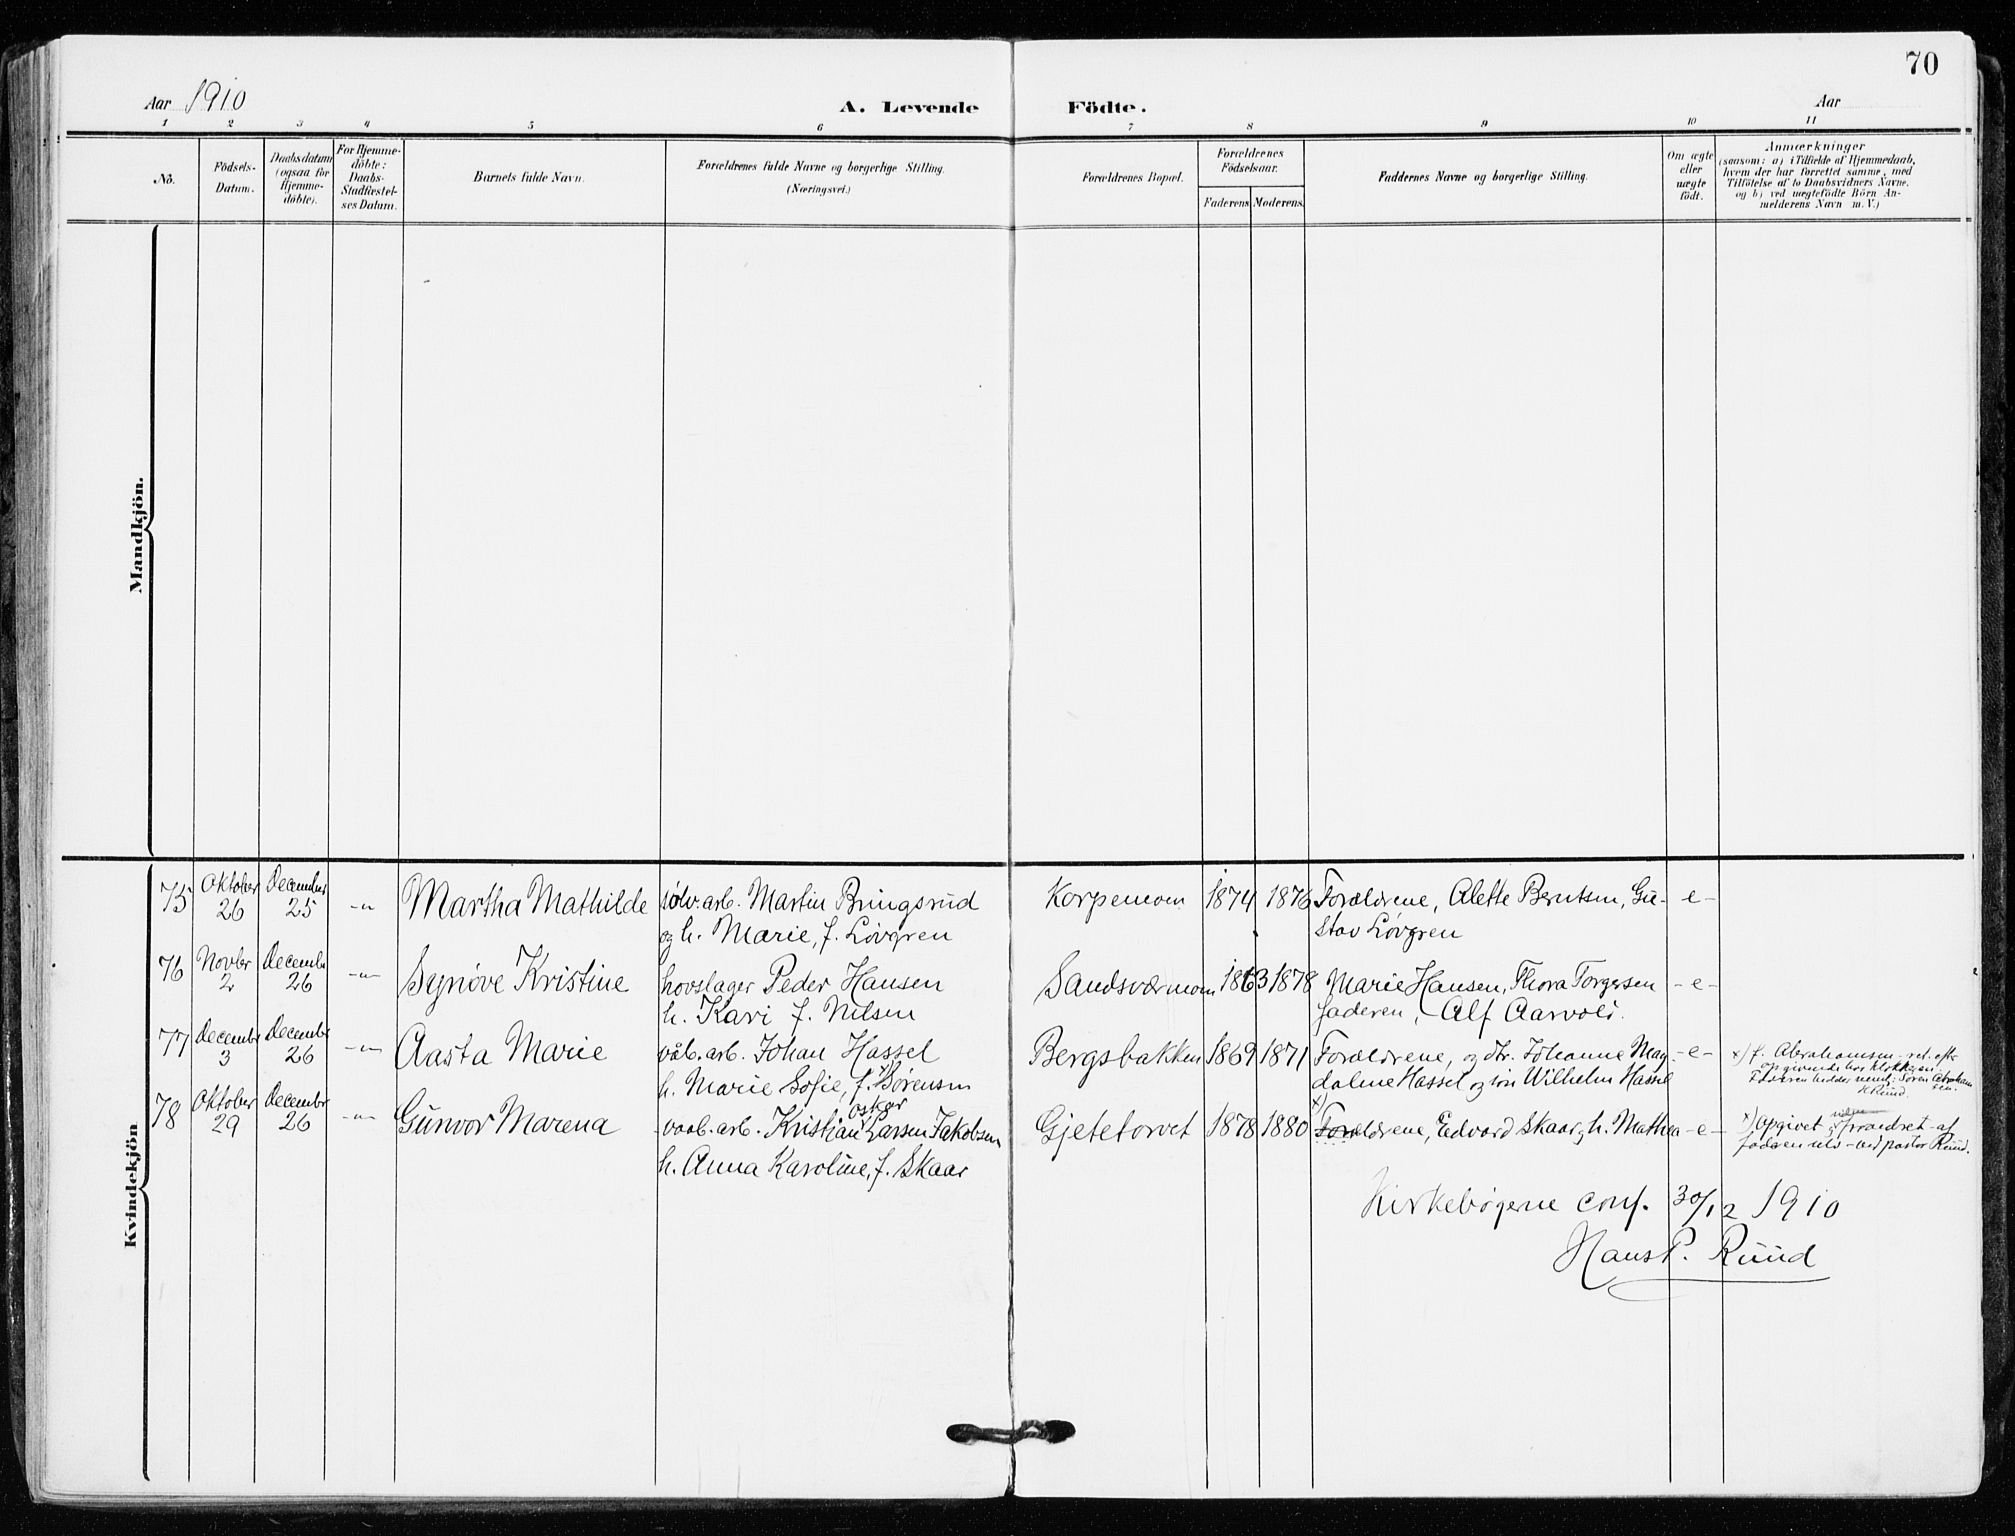 70
Aar 1910 A. Levende Födte. Aar
1 2 3 4 5 6 7 8 9 10 11
No.
Födsels-
Datum.
Daabsdatum
(ogsaa for
Hjemme-
döbte).
For Hjemme-
döbte:
Daabs-
Stadfæstel-
ses Datum.
Barnets fulde Navn.
Forældrenes fulde Navne og borgerlige Stilling.
(Næringsvei.)
Forældrenes Bopæl.
Forældrenes
Födselsaar.
Faderens Moderens.
Faddernes Navne og borgerlige Stilling.
Om ægte
eller
uægte
födt.
Anmærkninger
(saasom: a) i Tilfælde af Hjemmedaab,
hvem der har forrettet samme, med
Tilföielse af to Daabsvidners Navne.
og b) ved uægtefödte Börn An-
melderens Navn m. V.)
Mandkjön.
Kvindekjön
75 Oktober 26 December 25 -"- Martha Mathilde sølv.arb. Martin Bringsrud Korpemoen 1874 1876 Forældrene, Alette Berntsen, Gu- -e-
og h. Marie, f. Løvgren stav Løvgren
76 Novbr 2 December 26 -"- Synøve Kristine hovslager Peder Hansen Sandsværmoen 1863 1878 Marie Hansen, Thora Torgersen -e-
h. Kari f. Nilsen faderen, Alf Aarvold.
77 December 3 December 26 -"- Aasta Marie våb.arb. Johan Hassel Bergsbakken 1869 1871 Forældrene, og dtr. Johanne Mag- -e- x) f. Abrahamsen - ret. efter
h. Marie Sofie, f. x) Sørensen dalene Hassel og søn Wilhelm Hassel opgivende hos klokkeren.
Faderen hedder neml: Søren Abraham
sen. HRuud.
78 Oktober 29 December 26 -"- Gunvor Marena vaab.arb. Kristian Oskar Larsen Jakobsen Gjetetorvet 1878 1880 x) Forældrene, Edvard Skaar, h. Mathea -e- x) Opgivet forandret af
h. Anna Karoline, f. Skaar faderen selv - ved pastor Ruud.
Kirkebøgerne conf. 30/12 1910
Hans P. Ruud